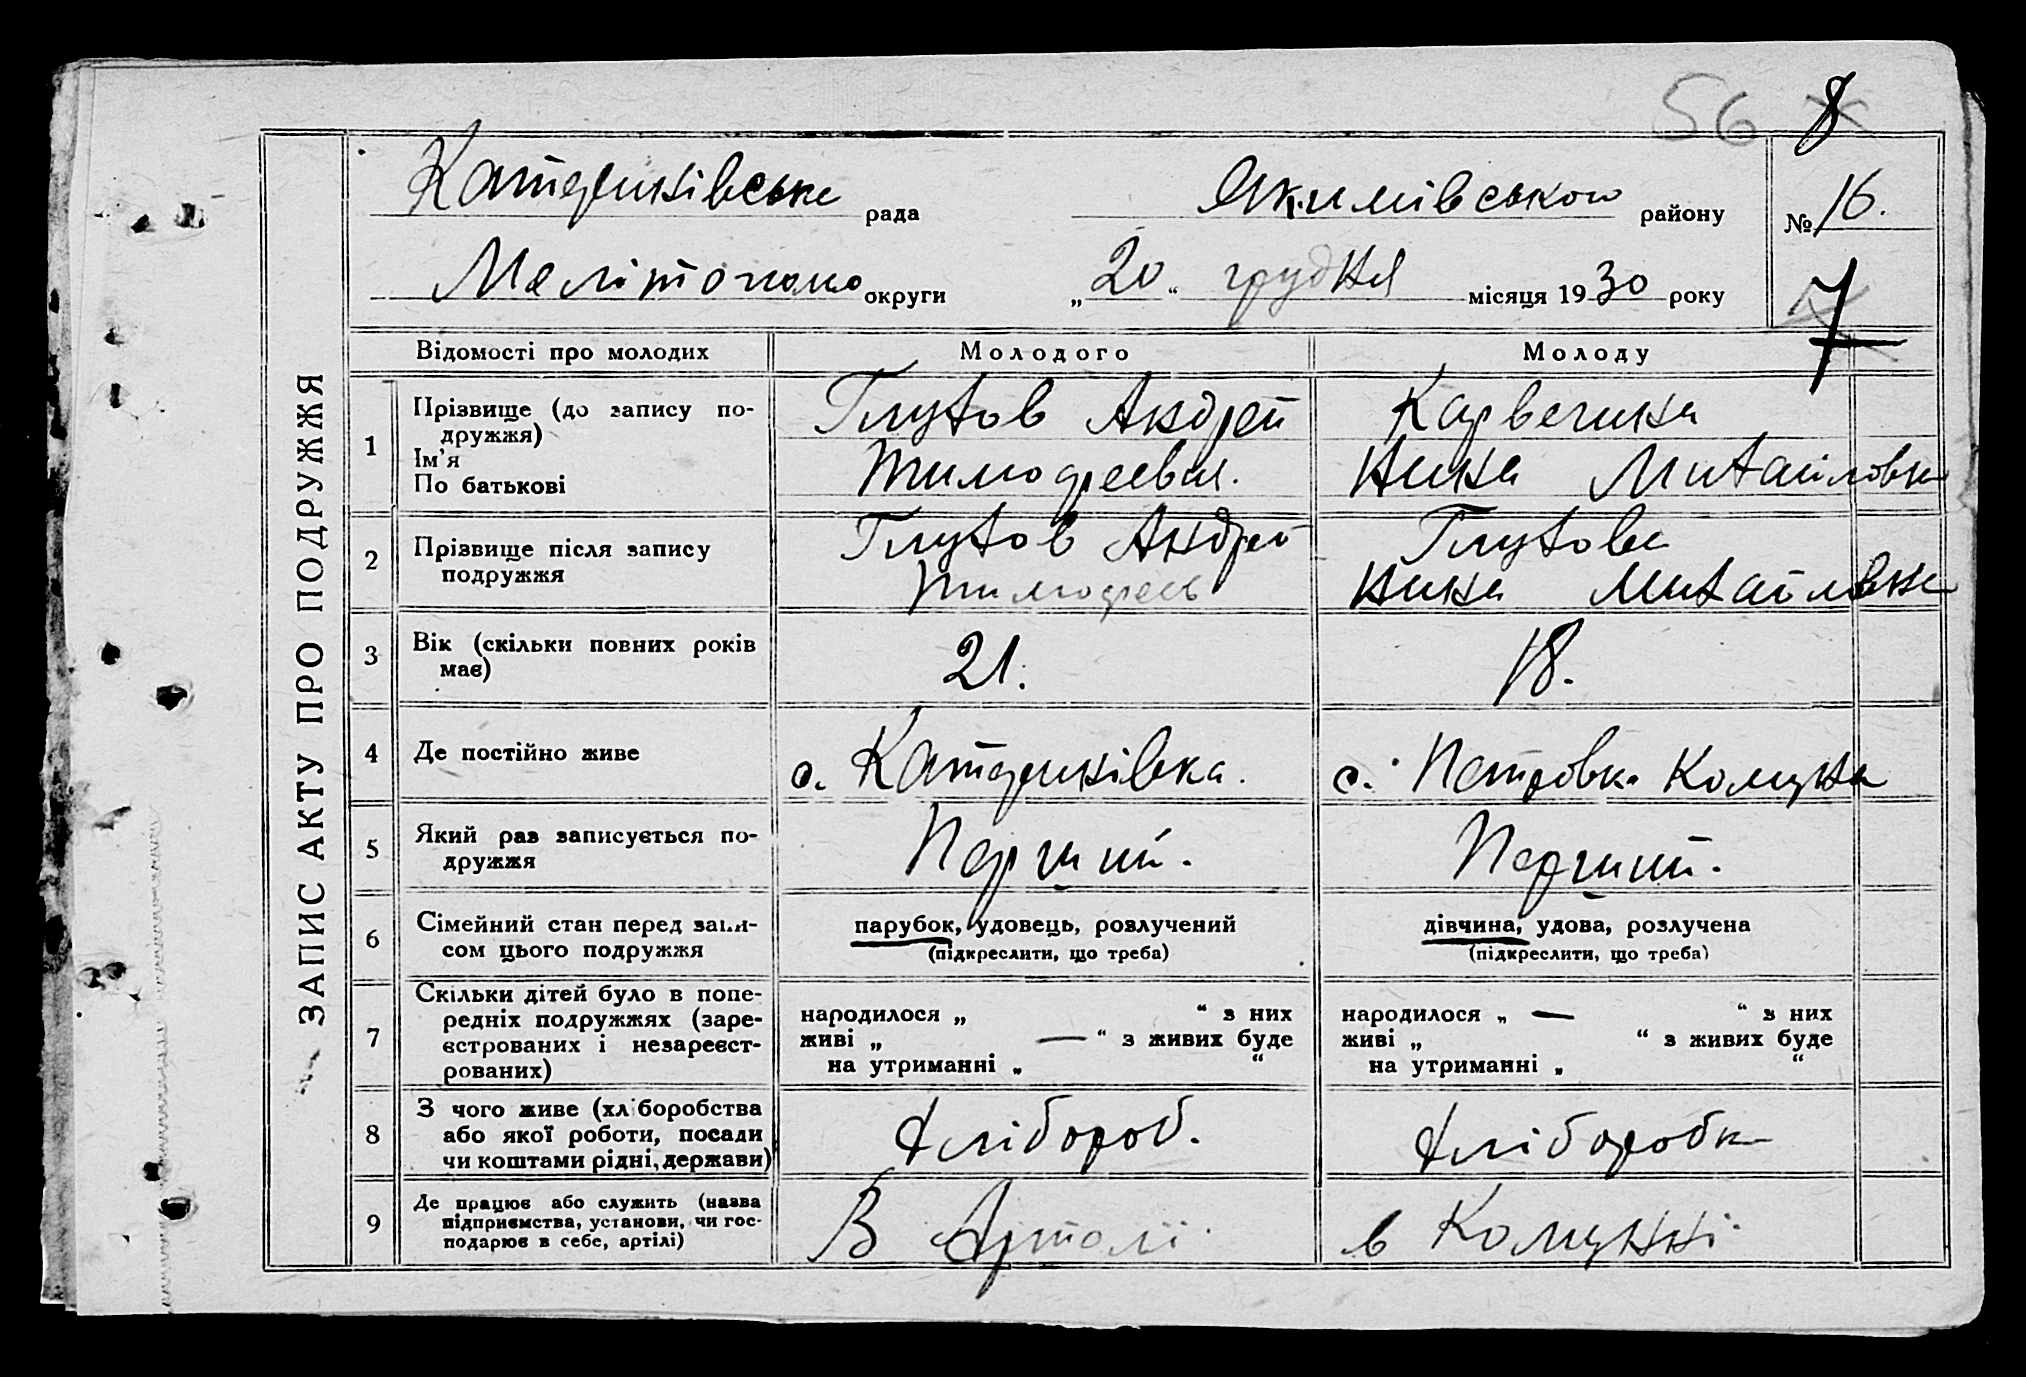 56 8
ЗАПИС АКТУ ПРО ПОДРУЖЖЯ
рада Якимівського району № 16.
округи „20“ грудня місяця 1930 року
7
Відомості про молодих Молодого Молоду
1 Прізвище (до запису по-
дружжя)
Ім'я
По батькові
Глухов Андрей
Нина Михайловна
2 Прізвище після запису
подружжя
Глухов Андрей
Глухова
Нина Михайлвна
3 Вік (скільки повних років
має)
21. 18.
4 Де постійно живе с. с. Петровка Комуна
5 Який раз записується по-
дружжя
Перший. Перший.
6 Сімейний стан перед запи-
сом цього подружжя
парубок, удовець, розлучений дівчина, удова, розлучена
(підкреслити, що треба) (підкреслити, що треба)
7 Скільки дітей було в попе-
редніх подружжях (заре-
єстрованих і незареєст-
рованих)
народилося „ “ з них народилося „ — “ з них
живі „ — “ з живих буде живі „ “ з живих буде
на утриманні „ “ на утриманні „ “
8 З чого живе (хліборобства
або якої роботи, посади
чи коштами рідні, держави)
Хлібороб. Хліборобка
9 Де працює або служить (назва
підприємства, установи, чи гос-
подарює в себе, артілі)
В Артелі в Комунні